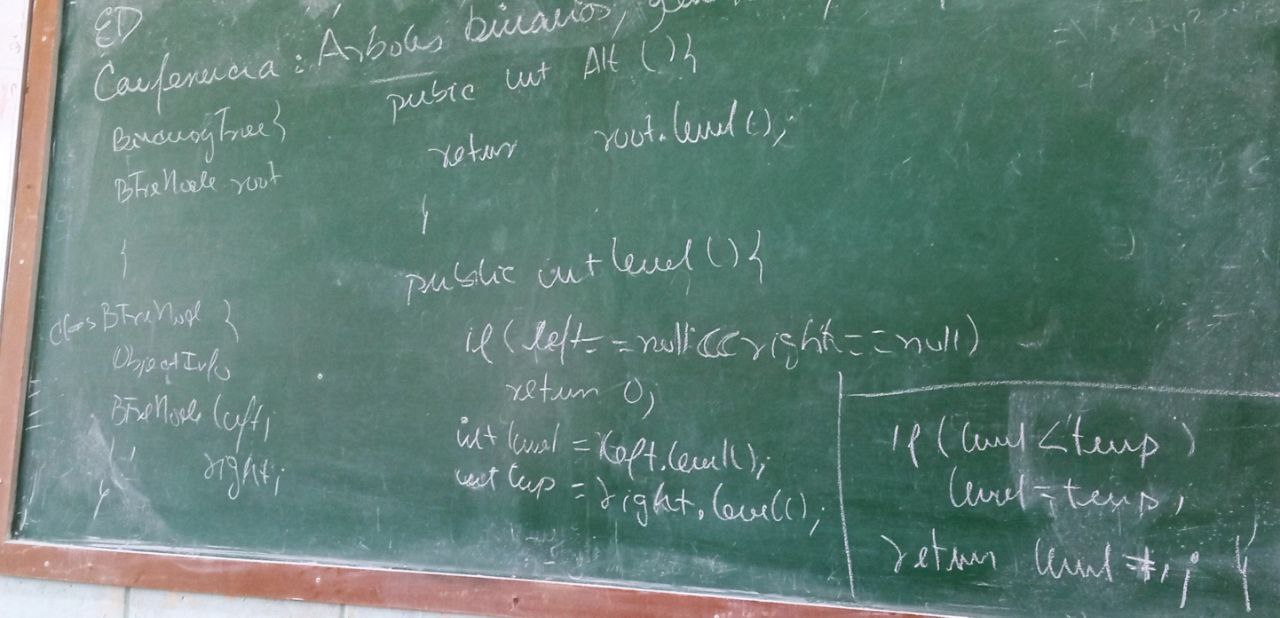 ED
Conferencia: Árboles binarios,
BinaryTree{
BTreNode root
}
class BTreNode {
Object Info
BTreNode left,
right;
}
public int Alt (){
return root.level();
}
public int level (){
if (left==null && right==null)
return 0;
int level = left.level();
int temp = right.level();
if (level < temp)
level = temp;
return level
}